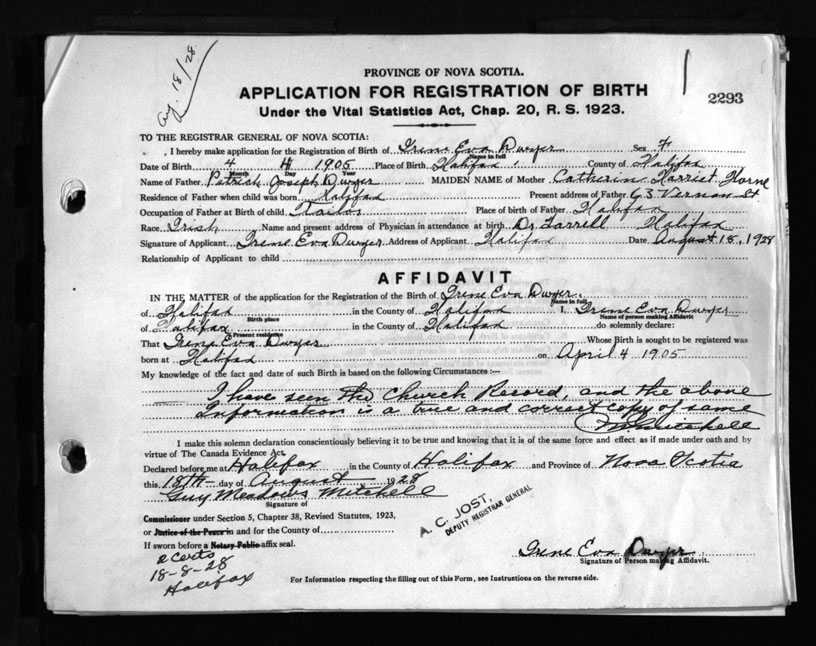 Aug. 18/28.
PROVINCE OF NOVA SCOTIA.
APPLICATION FOR REGISTRATION OF BIRTH
2293
Under the Vital Statistics Act, Chap. 20, R. S. 1923.
TO THE REGISTRAR GENERAL OF NOVA SCOTIA:
I hereby make application for the Registration of Birth of Irene Eva Dwyer Sex F
Name in full
Date of Birth 4 4 1905 Place of Birth Halifax County of Halifax
Month Day Year
Name of Father Patrick Joseph Dwyer MAIDEN NAME of Mother Catherin Harriet Horne
Residence of Father when child was born Halifax Present address of Father 63 Vernon St
Occupation of Father at Birth of child Tailor Place of birth of Father Halifax
Race Irish Name and present address of Physician in attendance at birth Dr Farrell Halifax
Signature of Applicant Irene Eva Dwyer Address of Applicant Halifax Date August 18, 1928
Relationship of Applicant to child
AFFIDAVIT
IN THE MATTER of the application for the Registration of the Birth of Irene Eva Dwyer
Name in full
of Halifax in the County of Halifax I, Irene Eva Dwyer
Birth place Name of person making Affidavit
of Halifax in the County of Halifax do solemnly declare:
Present residence
That Irene Eva Dwyer Whose Birth is sought to be registered was
born at Halifax on April 4 1905
My knowledge of the fact and date of such Birth is based on the following Circumstances :—
I have seen the Church Record, and the above
Information is a true and correct copy of same
Mitchell
I make this solemn declaration conscientiously believing it to be true and knowing that it is of the same force and effect as if made under oath and by
virtue of The Canada Evidence Act.
Declared before me at Halifax in the County of Halifax and Province of Nova Scotia
this 18th day of August 1928
Guy Meadows Mitchell
Signature of
Commissioner under Section 5, Chapter 38, Revised Statutes, 1923,
or Justice of the Peace in and for the County of
If sworn before a Notary Public affix seal.
A. C. JOST,
DEPUTY REGISTRAR GENERAL
2 Certs
18-8-28
Halifax
Irene Eva Dwyer
Signature of Person making Affidavit.
For Information respecting the filling out of this Form, see Instructions on the reverse side.